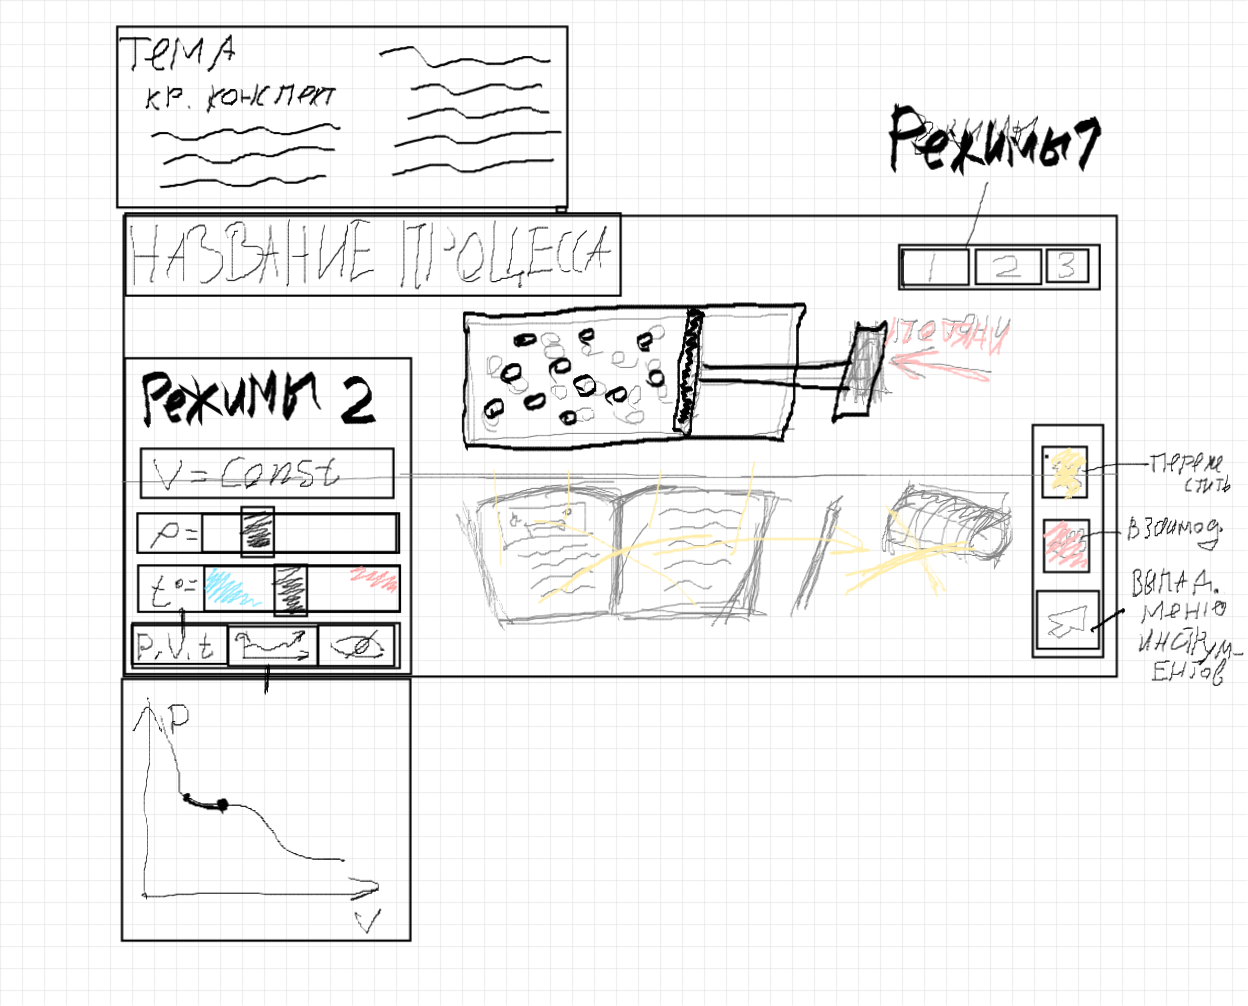 ТЕМА
КР. КОНСПЕКТ
Режимы 1
НАЗВАНИЕ ПРОЦЕССА
1 2 3
Режимы 2
V = Const
P =
t° =
P, V, t
Переме
стить
Взаимод.
ВЫПАД.
МЕНЮ
ИНСТРУМ-
ЕНТОВ
P
V